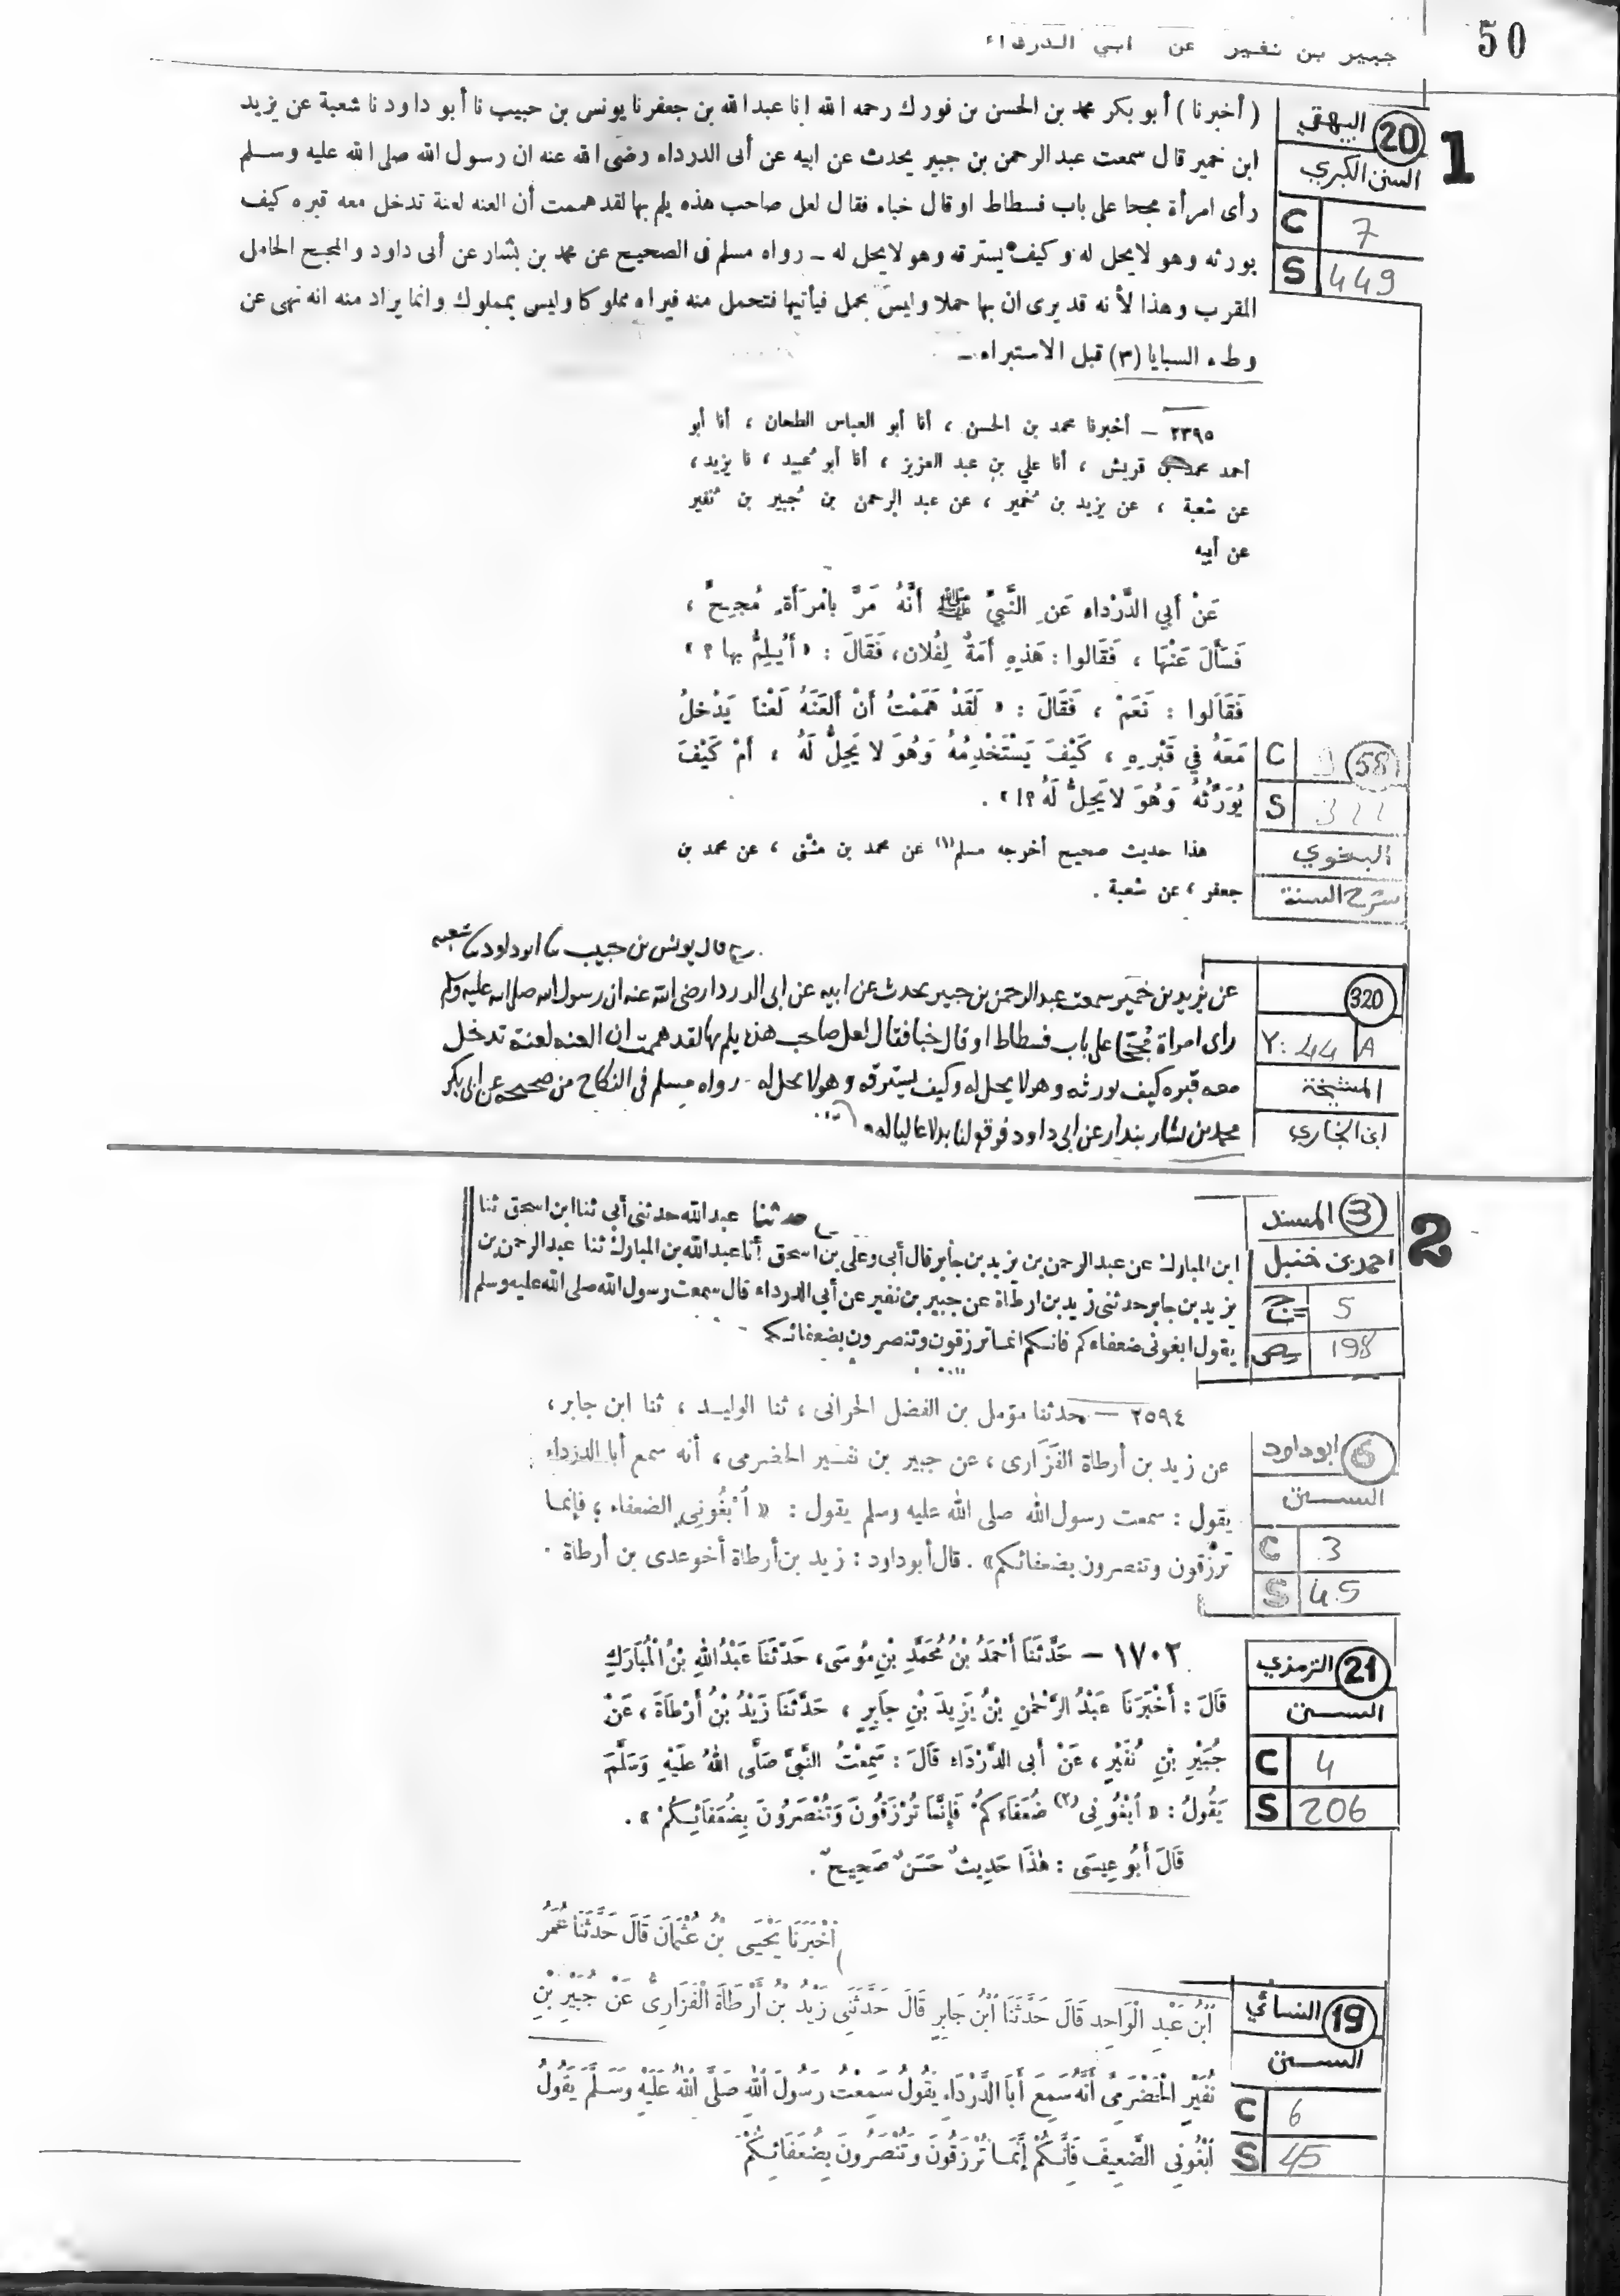 50
جبير بن نفير عن ابي الدرداء
1
20 البيهقي
السنن الكبري
C 7
S 449
( أخبرنا ) أبو بكر محمد بن الحسن بن فورك رحمه الله انا عبد الله بن جعفر نا يونس بن حبيب نا أبو داود نا شعبة عن يزيد
ابن خمير قال سمعت عبد الرحمن بن جبير يحدث عن ابيه عن أبى الدرداء رضى الله عنه ان رسول الله صلى الله عليه وسلم
رأى امرأة مجحا على باب فسطاط او قال خباء فقال لعل صاحب هذه يلم بها لقد هممت أن العنه لعنة تدخل معه قبره كيف
يورثه وهو لا يحل له وكيف يسترقه وهو لا يحل له ــ رواه مسلم فى الصحيح عن محمد بن بشار عن أبى داود والمجح الحامل
المقرب وهذا لأنه قد يرى ان بها حملا وليس بحمل فيأتيها فتحمل منه فيراه مملوكا وليس بمملوك وانما يراد منه انه نهى عن
وطء السبايا (٣) قبل الاستبراء ــ
٢٣٩٥ ــ أخبرنا محمد بن الحسن ، أنا أبو العباس الطحان ، أنا أبو
أحمد محمد بن قريش ، أنا علي بن عبد العزيز ، أنا أبو عُبيد ، نا يزيد ،
عن شعبة ، عن يزيد بن خُمير ، عن عبد الرحمن بن جُبير بن نُفير
عن أبيه
عَنْ أَبي الدَّرْدَاء عَنِ النَّبيِّ ﷺ أَنَّهُ مَرَّ بامْرَأَةٍ مُجِحٍّ ،
فَسَأَلَ عَنْهَا ، فَقَالوا : هَذِهِ أَمَةٌ لِفُلان ، فَقَالَ : « أَيُلِمُّ بها ؟ »
فَقَالوا : نَعَمْ ، فَقَالَ : « لَقَدْ هَمَمْتُ أَنْ أَلعَنَهُ لَعْناً يَدْخلُ
مَعَهُ في قَبْرِهِ ، كَيْفَ يَسْتَخْدِمُهُ وَهُوَ لا يَحِلُّ لَهُ ، أَمْ كَيْفَ
يُوَرِّثُهُ وَهُوَ لا يَحِلُّ لَهُ ؟! » .
هذا حديث صحيح أخرجه مسلم(١) عن محمد بن مثنى ، عن محمد بن
جعفر ، عن شعبة .
58
C 9
S 322
البغوي
شرح السنة
قال يونس بن حبيب ثنا ابو داود ثنا شعبه
عن يزيد بن خمير سمعت عبد الرحمن بن جبير يحدث عن ابيه عن ابى الدردا رضى الله عنه ان رسول الله صلى الله عليه وسلم
راى امراة مُجحّا على باب فسطاط او قال خبا فقال لعل صاحب هذه يلم بها لقد هممت ان العنه لعنة تدخل
معه قبره كيف يورثه وهو لا يحل له وكيف يسترقه وهو لا يحل له - رواه مسلم فى النكاح من صحيحه عن ابى بكر
محمد بن بشار بندار عن ابى داود فوقع لنا بدلا عاليا له
320
Y: 44 A
المشيخة
ابن البخاري
2
3 المسند
احمد بن حنبل
ج 5
ص 198
حدثنا عبد الله حدثنى أبى ثنا ابن اسحق ثنا
ابن المبارك عن عبد الرحمن بن يزيد بن جابر قال أبى وعلى بن اسحق أنا عبد الله بن المبارك ثنا عبد الرحمن بن
يزيد بن جابر حدثنى زيد بن ارطاة عن جبير بن نفير عن أبى الدرداء قال سمعت رسول الله صلى الله عليه وسلم
يقول ابغونى ضعفاءكم فانكم انما ترزقون وتنصرون بضعفائكم
٢٥٩٤ — حدثنا مؤمل بن الفضل الحرانى ، ثنا الوليد ، ثنا ابن جابر ،
عن زيد بن أرطاة الفَزَارى ، عن جبير بن نفير الحضرمى ، أنه سمع أبا الدرداء
يقول : سمعت رسول الله صلى الله عليه وسلم يقول : « اُبْغُونِى الضعفاء ؛ فإنما
ترزقون وتنصرون بضعفائكم » . قال أبو داود : زيد بن أرطاة أخو عدى بن أرطاة .
6 ابو داود
السنن
C 3
S 45
١٧٠٢ — حَدَّثَنَا أَحْمَدُ بْنُ مُحَمَّدِ بْنِ مُوسَى ، حَدَّثَنَا عَبْدُ اللهِ بْنُ الْمُبَارَكِ
قَالَ : أَخْبَرَنَا عَبْدُ الرَّحْمٰنِ بْنُ يَزِيدَ بْنِ جَابِرٍ ، حَدَّثَنَا زَيْدُ بْنُ أَرْطَاةَ ، عَنْ
جُبَيْرِ بْنِ نُفَيْرٍ ، عَنْ أَبى الدَّرْدَاء قَالَ : سَمِعْتُ النَّبىَّ صَلَّى اللهُ عَلَيْهِ وَسَلَّمَ
يَقُولُ : « اُبْغُونِى(٢) ضُعَفَاءَكُمْ فَإِنَّمَا تُرْزَقُونَ وَتُنْصَرُونَ بِضُعَفَائِكُمْ » .
قَالَ أَبُو عِيسَى : هٰذَا حَدِيثٌ حَسَنٌ صَحِيحٌ .
21 الترمذي
السنن
C 4
S 206
أَخْبَرَنَا يَحْيَى بْنُ عُثْمَانَ قَالَ حَدَّثَنَا عُمَرُ
ابْنُ عَبْدِ الْوَاحِدِ قَالَ حَدَّثَنَا ابْنُ جَابِرٍ قَالَ حَدَّثَنِى زَيْدُ بْنُ أَرْطَاةَ الْفَزَارِىُّ عَنْ جُبَيْرِ بْنِ
نُفَيْرٍ الْحَضْرَمِىِّ أَنَّهُ سَمِعَ أَبَا الدَّرْدَاءِ يَقُولُ سَمِعْتُ رَسُولَ اللهِ صَلَّى اللهُ عَلَيْهِ وَسَلَّمَ يَقُولُ
ابْغُونِى الضَّعِيفَ فَإِنَّكُمْ إِنَّمَا تُرْزَقُونَ وَتُنْصَرُونَ بِضُعَفَائِكُمْ
19 النسائي
السنن
C 6
S 45